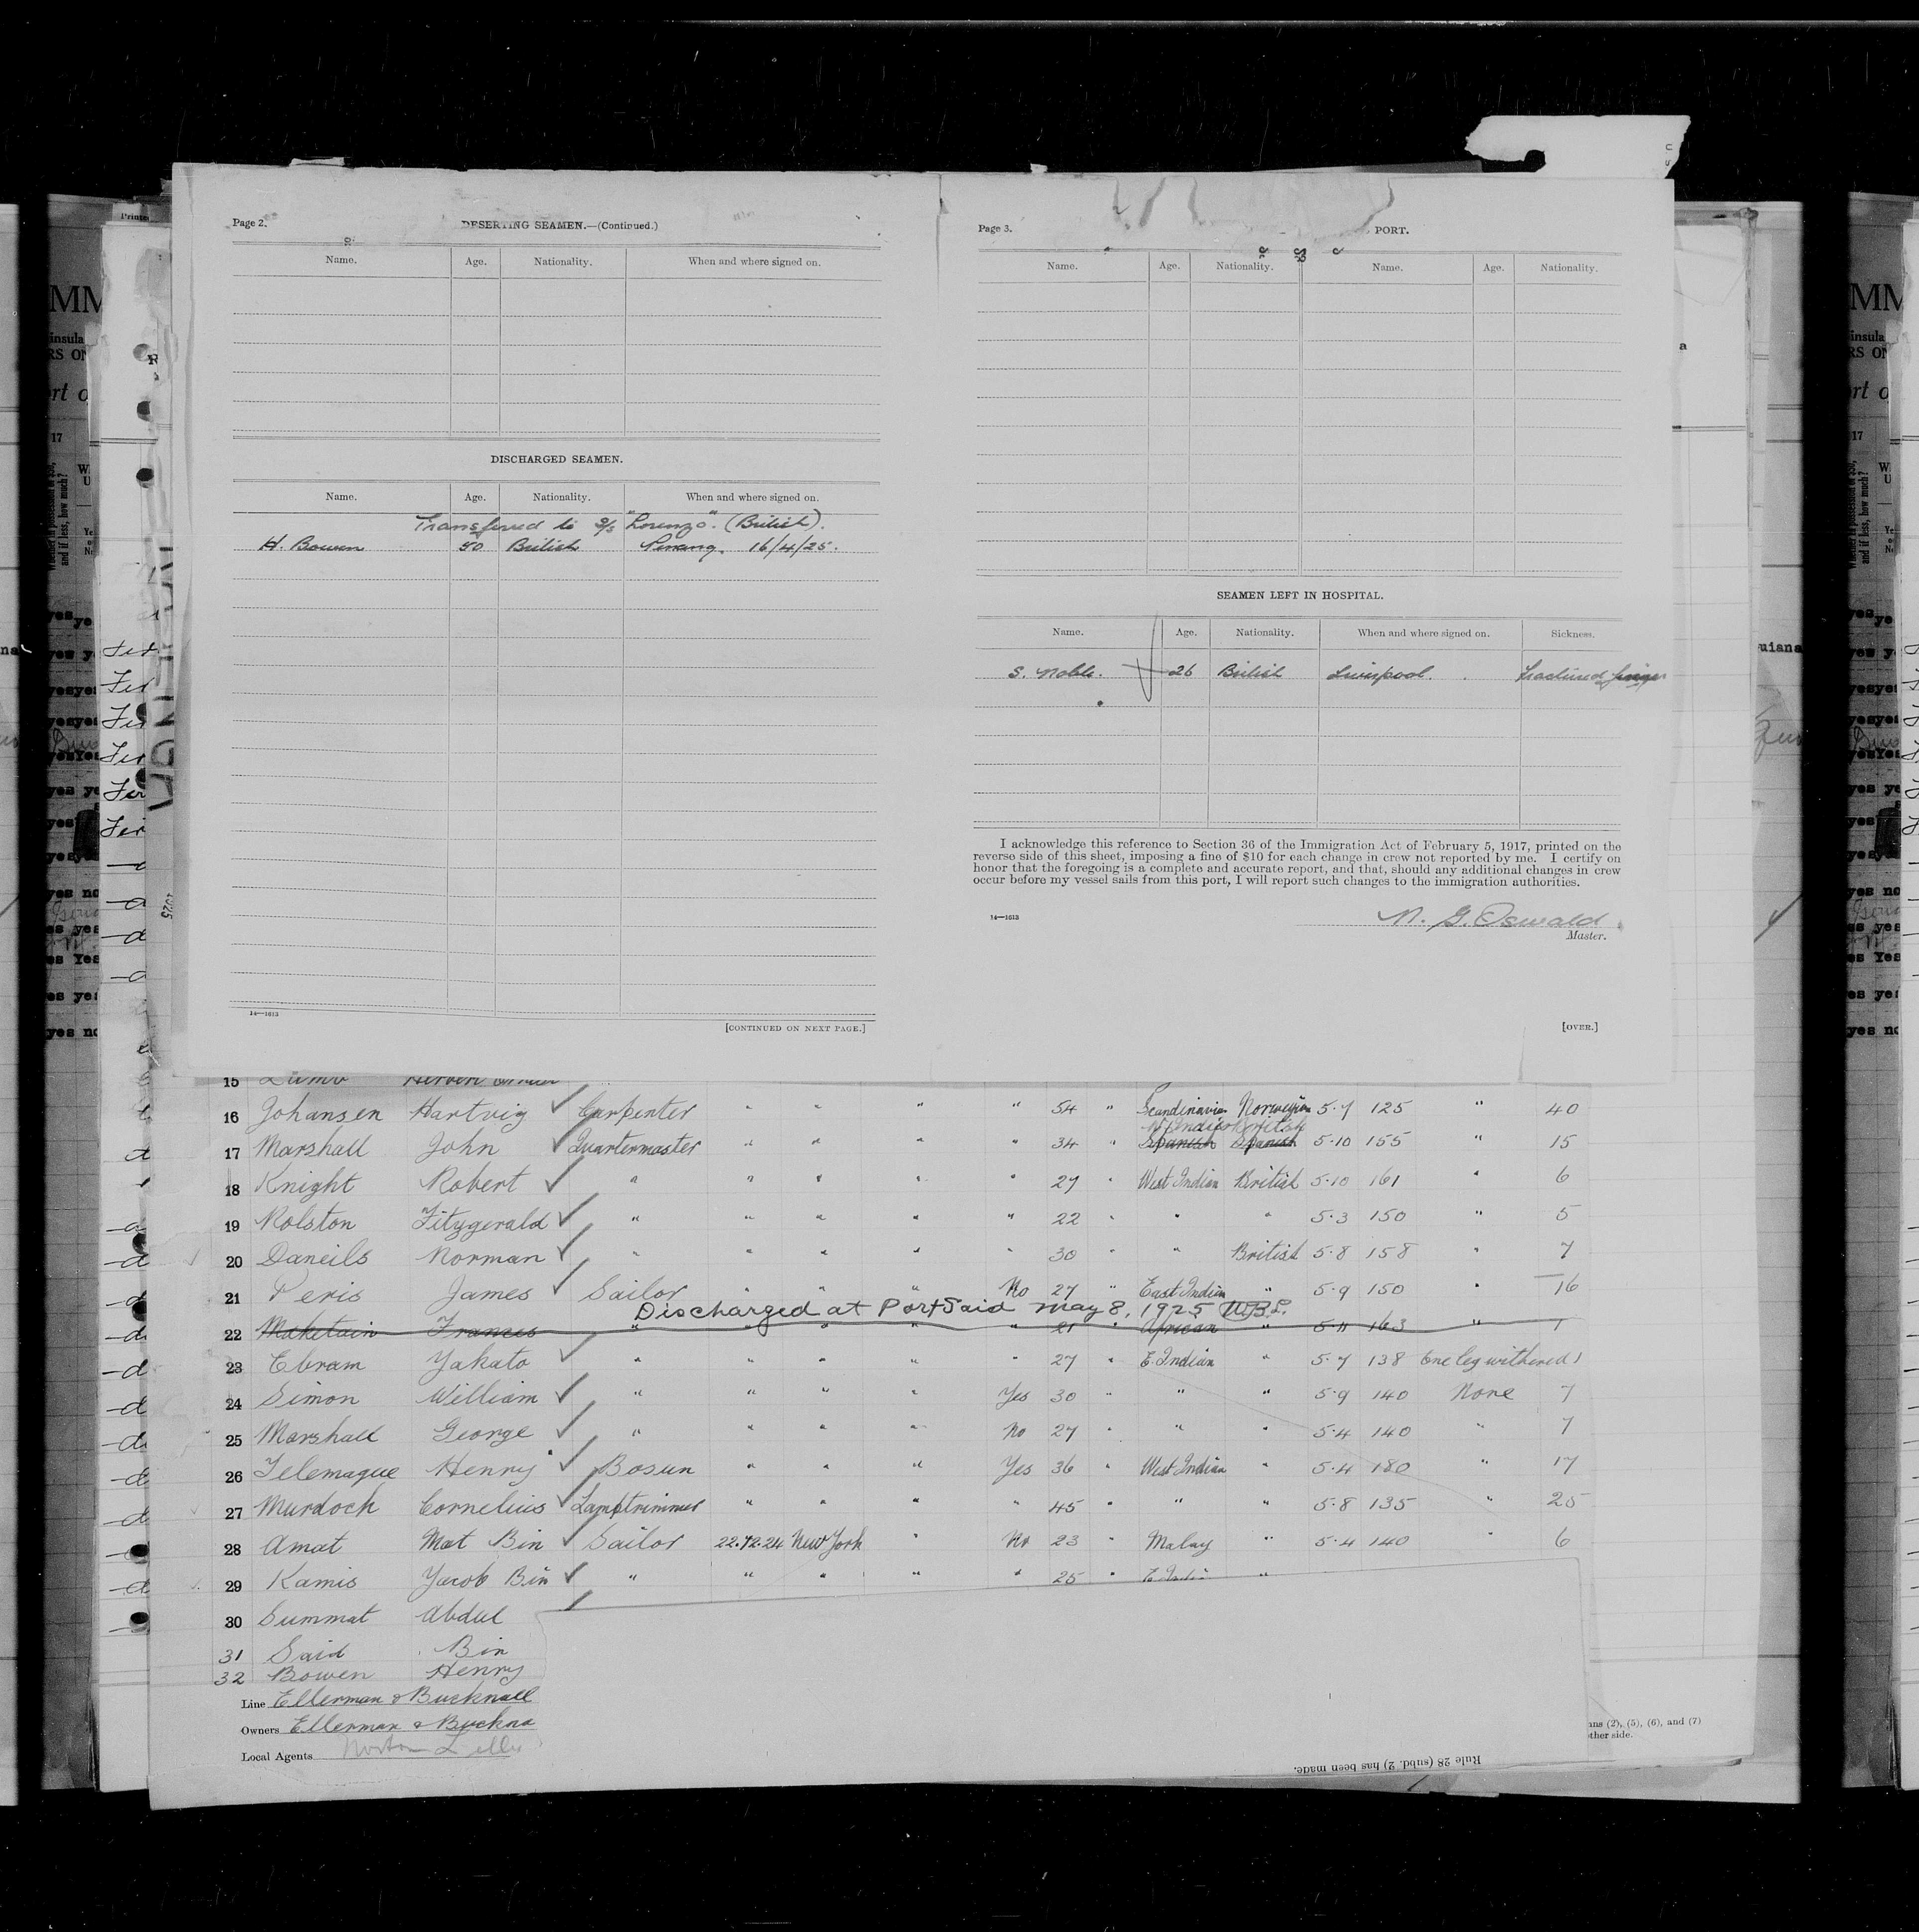 Page 2.
DESERTING SEAMEN.—(Continued.)
Name. Age. Nationality. When and where signed on.
DISCHARGED SEAMEN.
Name. Age. Nationality. When and where signed on.
Transferred to S/S "Lorenzo". (British).
H. Bowen 50 British Penang. 16/4/25.
14—1613
[CONTINUED ON NEXT PAGE.]
Page 3.
PORT.
Name. Age. Nationality. Name. Age. Nationality.
SEAMEN LEFT IN HOSPITAL.
Name. Age. Nationality. When and where signed on. Sickness.
S. Noble. 26 British Liverpool. fractured finger
I acknowledge this reference to Section 36 of the Immigration Act of February 5, 1917, printed on the
reverse side of this sheet, imposing a fine of $10 for each change in crew not reported by me. I certify on
honor that the foregoing is a complete and accurate report, and that, should any additional changes in crew
occur before my vessel sails from this port, I will report such changes to the immigration authorities.
14—1613
N. G. Oswald
Master.
[OVER.]
15
16 Johansen Hartvig ✓ Carpenter " " " " 54 " Scandinavian Norwegian 5·7 125 " 40
W. Indian British
17 Marshall John ✓ Quartermaster " " " " 34 " Spanish Spanish 5·10 155 " 15
18 Knight Robert ✓ " " " " " 27 " West Indian British 5·10 161 " 6
19 Rolston Fitzgerald ✓ " " " " " 22 " " " 5·3 150 " 5
20 Daneils Norman ✓ " " " " " 30 " " British 5·8 158 " 7
21 Peris James ✓ Sailor " " " No 27 " East Indian " 5·9 150 " 16
Discharged at Port Said May 8, 1925 W.B.L.
22 Maketain Frances " " " " " 21 " African " 5·11 163 " 1
23 Ebram Yakato ✓ " " " " " 27 " E. Indian " 5·7 138 One leg withered 1
24 Simon William ✓ " " " " Yes 30 " " " 5·9 140 None 7
25 Marshall George ✓ " " " " No 27 " " " 5·4 140 " 7
26 Telemaque Henry ✓ Bosun " " " Yes 36 " West Indian " 5·4 180 " 17
27 Murdoch Cornelius ✓ Lamptrimmer " " " " 45 " " " 5·8 135 " 25
28 Amat Mat Bin ✓ Sailor 22.12.24 New York " No 23 " Malay " 5·4 140 " 6
29 Kamis Yacob Bin ✓ " " " " " 25 " E. Indian "
30 Summat Abdul ✓
31 Said Bin
32 Bowen Henry
Line Ellerman & Bucknall
Owners Ellerman & Buckna
Local Agents Norton L
ns (2), (5), (6), and (7)
ther side.
Rule 28 (subd. 2) has been made.